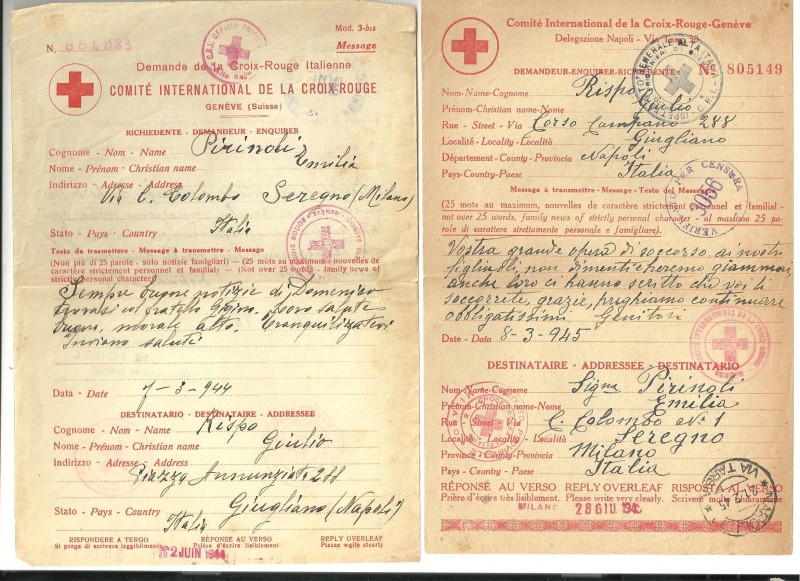 Mod. 3-bis
Message
N. 664083
C.R.I. UFFICIO
Demande de la Croix-Rouge Italienne
COMITÉ INTERNATIONAL DE LA CROIX-ROUGE
GENÈVE (Suisse)
RICHIEDENTE - DEMANDEUR - ENQUIRER
Cognome - Nom - Name Pirinoli
Nome - Prénom - Christian name Emilia
Indirizzo - Adresse - Address
Via C. Colombo Seregno (Milano)
Stato - Pays - Country Italia
Testo da trasmettere - Message à transmettre - Message
(Non più di 25 parole - solo notizie famigliari) - (25 mots au maximum - nouvelles de
caractère strictement personnel et familial) - (Not over 25 words - family news of
strictly personal character)
Sempre buone notizie di Domenico
trovasi col fratello Gigino. Sono salute
buona, morale alto. Tranquilizzatevi
Inviano saluti
Data - Date 7-3-944
DESTINATARIO - DESTINATAIRE - ADDRESSEE
Cognome - Nom - Name Rispo
Nome - Prénom - Christian name Giulio
Indirizzo - Adresse - Address
Piazza Annunziata 288
Giugliano (Napoli)
Stato - Pays - Country Italia
RISPONDERE A TERGO RÉPONSE AU VERSO REPLY OVERLEAF
Si prega di scrivere leggibilmente Prière d'écrire lisiblement Please write clearly
2 JUIN 1944
Comité International de la Croix-Rouge-Genève
Delegazione Napoli - Via Tasso
DEMANDEUR-ENQUIRER-RICHIEDENTE
No 805149
Nom-Name-Cognome Rispo
Prénom-Christian name-Nome Giulio
Rue - Street - Via Corso Campano 248
Localité-Locality-Località Giugliano
Département-County-Provincia Napoli
Pays-Country-Paese Italia
VERIFICATO PER CENSURA
Message à transmettre - Message - Testo del Messaggio
(25 mots au maximum, nouvelles de caractère strictement personnel et familial -
not over 25 words, family news of strictly personal character - al massimo 25 parole
di carattere strettamente personale e famigliare).
Vostra grande opera di soccorso, ai nostri
figliuoli, non dimenticheremo giammai,
anche loro ci hanno scritto che voi li
soccorrete, grazie, preghiamo continuare
obbligatissimi Genitori
Date - Data 8-3-945
COMITÉ INTERNATIONAL DE LA CROIX-ROUGE
DESTINATAIRE - ADDRESSEE - DESTINATARIO
Nom-Name-Cognome Sigra Pirinoli
Prénom-Christian name-Nome Emilia
Rue - Street - Via C. Colombo No 1
Localité - Locality - Località Seregno
Province - County - Provincia Milano
Pays - Country - Paese Italia
RÉPONSE AU VERSO REPLY OVERLEAF RISPOSTA AL VERSO
Prière d'écrire très lisiblement. Please write very clearly. Scrivere molto chiaramente
MILANO 28 GIU 1945